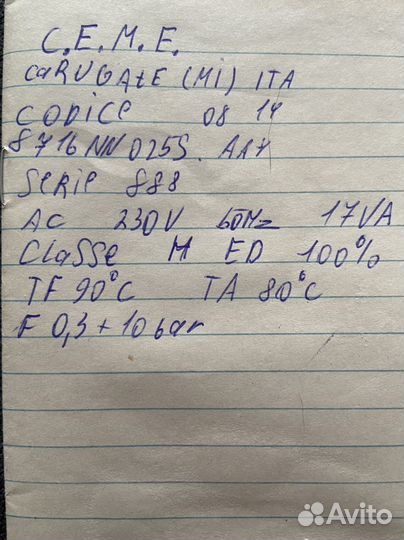 C.E.M.E.
CARUGATE (MI) ITA
CODICE 08 14
8716NN025S. A17
Serie 888
AC 230V 50Hz 17VA
Classe H ED 100%
TF 90°C TA 80°C
F 0,3 + 10 bar
Avito